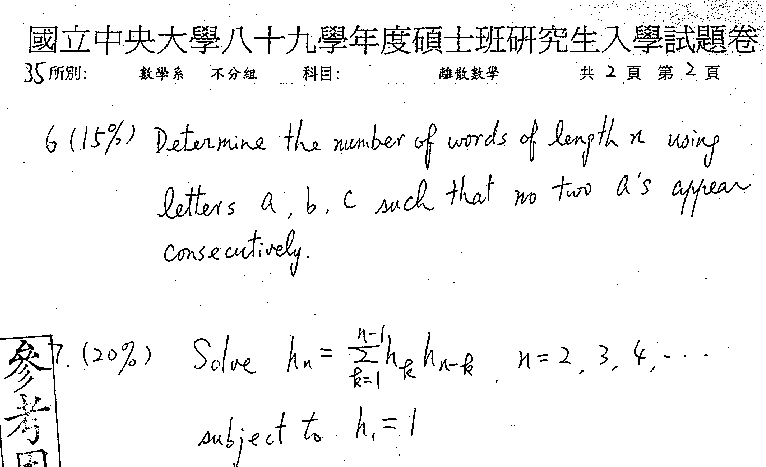 國立中央大學八十九學年度碩士班研究生入學試題卷
35所別: 數學系 不分組 科目: 離散數學 共 2 頁 第 2 頁
6 (15%) Determine the number of words of length n using
letters a, b, c such that no two a's appear
consecutively.
7. (20%) Solve hₙ = Σ_{k=1}^{n-1} hₖ hₙ₋ₖ, n = 2, 3, 4, ...
subject to h₁ = 1
參考用